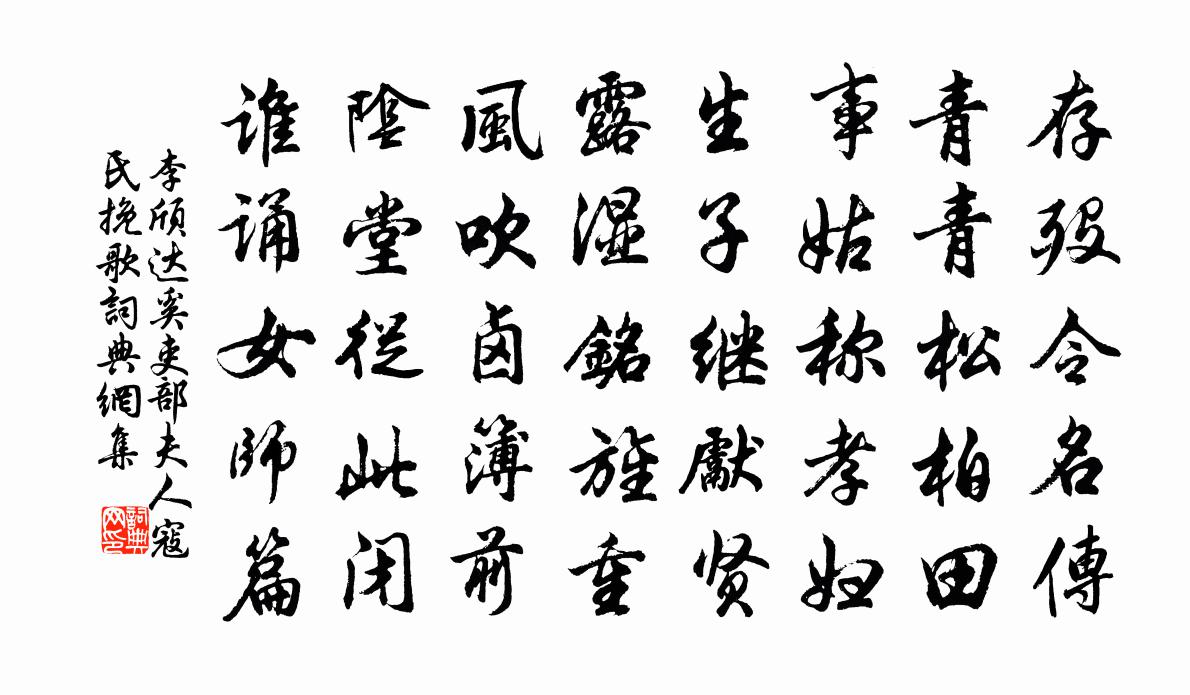 存殁令名傳
青青松柏田
事姑称孝妇
生子继獻贤
露濕銘旌重
風吹卤簿前
陰堂從此闭
谁诵女師篇
李頎达奚吏部夫人寇
氏挽歌詞典網集
詞典网印